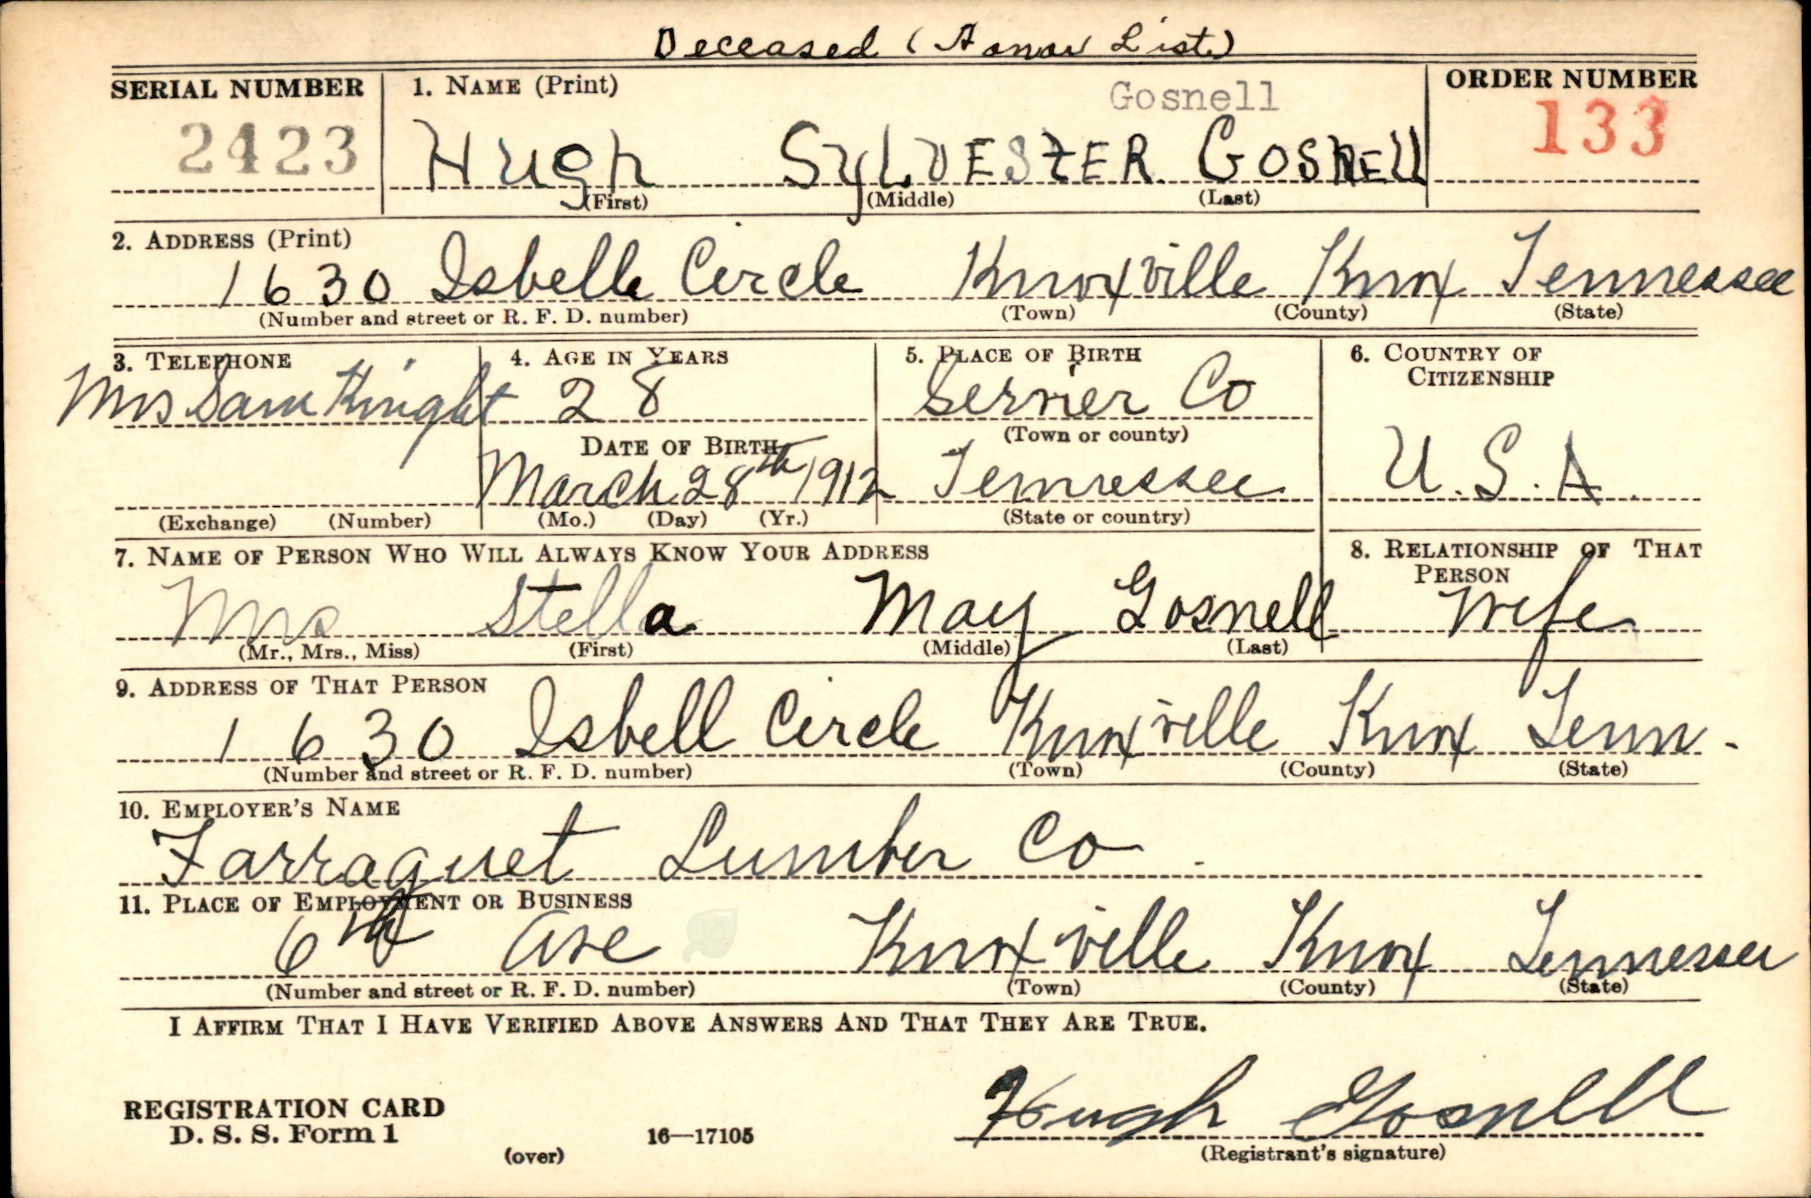 Deceased (Honor List)
SERIAL NUMBER
2423
1. NAME (Print)
Gosnell
HUGh SYLVESTER GOSNELL
(First) (Middle) (Last)
ORDER NUMBER
133
2. ADDRESS (Print)
1630 Isbelle Circle Knoxville Knox Tennessee
(Number and street or R. F. D. number) (Town) (County) (State)
3. TELEPHONE
Mrs Sam Knight
(Exchange) (Number)
4. AGE IN YEARS
28
DATE OF BIRTH
March 28th 1912
(Mo.) (Day) (Yr.)
5. PLACE OF BIRTH
Servier Co
(Town or county)
Tennessee
(State or country)
6. COUNTRY OF
CITIZENSHIP
U.S.A.
7. NAME OF PERSON WHO WILL ALWAYS KNOW YOUR ADDRESS
Mrs Stella May Gosnell
(Mr., Mrs., Miss) (First) (Middle) (Last)
8. RELATIONSHIP OF THAT
PERSON
Wife
9. ADDRESS OF THAT PERSON
1630 Isbell Circle Knoxville Knox Tenn.
(Number and street or R. F. D. number) (Town) (County) (State)
10. EMPLOYER'S NAME
Farraguet Lumber Co.
11. PLACE OF EMPLOYMENT OR BUSINESS
6th Ave Knoxville Knox Tennessee
(Number and street or R. F. D. number) (Town) (County) (State)
I AFFIRM THAT I HAVE VERIFIED ABOVE ANSWERS AND THAT THEY ARE TRUE.
REGISTRATION CARD
D. S. S. Form 1
(over)
16—17105
Hugh Gosnell
(Registrant's signature)